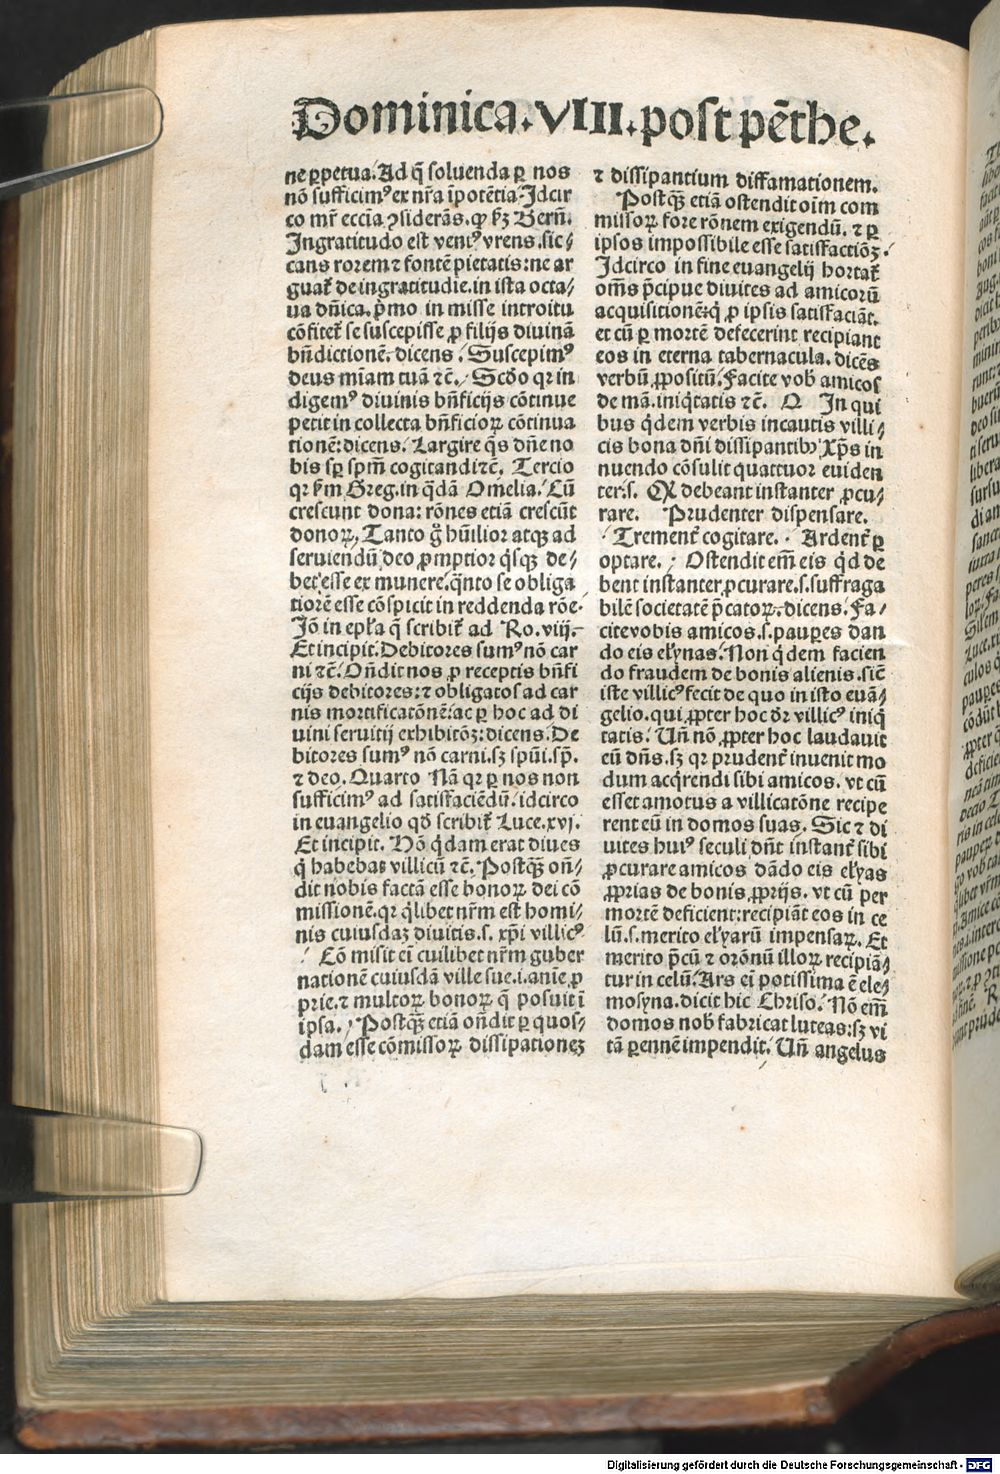 Dominica.VIII.post pēthe.
ne ꝑpetua. Ad q̄ soluenda ꝑ nos
nō sufficimꝰ ex nr̄a īpotētia. Idcir
co mr̄ eccīa ꝯsiderās. ꝙ ẜꝫ Berñ.
Ingratitudo est ventꝰ vrens. sic⸗
cans rorem ⁊ fontē pietatis: ne ar
guat᷑ de ingratitudīe. in ista octa⸗
ua dn̄ica. p̄mo in misse introitu
cōfitet᷑ se suscepisse ꝓ filijs diuinā
bn̄dictionē. dicens. Suscepimꝰ
deus mīam tuā ⁊c̄. Scd̄o qꝛ in
digemꝰ diuinis bn̄ficijs cōtinue
petit in collecta bn̄ficioꝝ cōtinua
tionē: dicens. Largire q̄s dn̄e no
bis sꝑ spm̄ cogitandi ⁊c̄. Tercio
qꝛ ẜm Greg. in q̄dā Omelia. Cū
crescunt dona: rōnes etiā crescūt
donoꝝ, Tanto g̊ hūilior atqꝫ ad
seruiendū deo ꝓmptior q̇sqꝫ de⸗
bet esse ex munere. q̄nto se obliga
tiorē esse cōspicit in reddenda rōe.
Iō in ep̄la q̄ scribit᷑ ad Ro. viij.
Et incipit. Debitores sumꝰ nō car
ni ⁊c̄. Oñdit nos ꝓ receptis bn̄fi
cijs debitores: ⁊ obligatos ad car
nis mortificatōnē: ac ꝑ hoc ad di
uini seruitij exhibitōꝫ: dicens. De
bitores sumꝰ nō carni. sꝫ spūi. sp̄.
⁊ deo. Quarto Nā qꝛ ꝑ nos non
sufficimꝰ ad satisfaciēdū. idcirco
in euangelio qd̄ scribit᷑ Luce. xvj.
Et incipit. Hō q̇dam erat diues
q̇ habebat villicū ⁊c̄. Postqꝫ̄ oñ⸗
dit nobis factā esse bonoꝝ dei cō
missionē. qꝛ q̇libet nr̄m est homi⸗
nis cuiusdaꝫ diuitis. s. xp̄i villicꝰ
Cō misit eī cuilibet nr̄m guber
nationē cuiusdā ville sue. i. anīe ꝓ
prie. ⁊ multoꝝ bonoꝝ q̄ posuit ī
ipsa. Postqꝫ̄ etiā oñdit ꝑ quos⸗
dam esse cōmissoꝝ dissipationeꝫ
⁊ dissipantium diffamationem.
Postqꝫ̄ etiā ostendit oīm com
missoꝝ fore rōnem exigendū. ⁊ ꝑ
ipsos impossibile esse satisfactiōꝫ.
Idcirco in fine euangelij hortat᷑
om̄s p̄cipue diuites ad amicorū
acquisitionē: q̇ ꝓ ipsis satisfaciāt.
et cū ꝑ mortē defecerint recipiant
eos in eterna tabernacula. dicēs
verbū ꝓpositū. Facite vob̄ amicos
de mā. iniq̇tatis ⁊c̄. Q In qui
bus q̇dem verbis incautis villi⸗
cis bona dn̄i dissipantibꝰ Xp̄s in
nuendo cōsulit quattuor euiden
ter. s. Ꝙ debeant instanter ꝓcu⸗
rare. Prudenter dispensare.
Trement᷑ cogitare. Ardent᷑ ꝑ
optare. Ostendit em̄ eis q̇d de
bent instanter ꝓcurare. s. suffraga
bilē societatē p̄catoꝝ. dicens. Fa⸗
cite vobis amicos. s. pauꝑes dan
do eis ełynas. Non q̇dem facien
do fraudem de bonis alienis. sic̄
iste villicꝰ fecit de quo in isto euā⸗
gelio. qui ꝓpter hoc dr̄ villicꝰ iniq̇
tatis. Uñ nō ꝓpter hoc laudauit
eū dn̄s. sꝫ qꝛ prudent᷑ inuenit mo
dum acq̇rendi sibi amicos. vt cū
esset amotus a villicatōne recipe
rent eū in domos suas. Sic ⁊ di
uites huiꝰ seculi dn̄t instant᷑ sibi
ꝓcurare amicos dādo eis ełyas
ꝓprias de bonis ꝓprijs. vt cū per
mortē deficient: recipiāt eos in ce
lū. s. merito ełyarū impensaꝝ. Et
merito p̄cū ⁊ orōnū illoꝝ recipiā⸗
tur in celū. Ars eī potissima ē ele⸗
mosyna. dicit hic Chriso. Nō em̄
domos nob̄ fabricat luteas: sꝫ vi
tā ꝑennē impendit. Uñ angelus
Digitalisierung gefördert durch die Deutsche Forschungsgemeinschaft - DFG